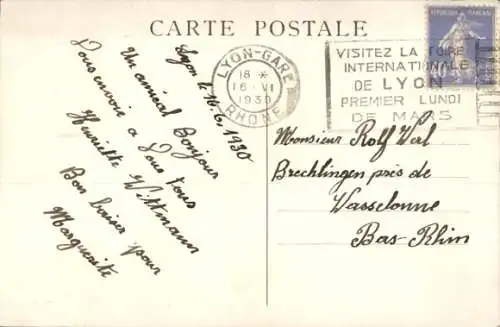 CARTE POSTALE
Lyon le 16.6.1930
Un amical Bonjour
Vous envoie a Vous tous
Henriette Wittmann
Bon baiser pour
Marguerite
LYON-GARE
18 *
16 - VI
1930
RHONE
VISITEZ LA FOIRE
INTERNATIONALE
DE LYON
PREMIER LUNDI
DE MARS
Monsieur Rolf
Brechlingen près de
Wasselonne
Bas-Rhin